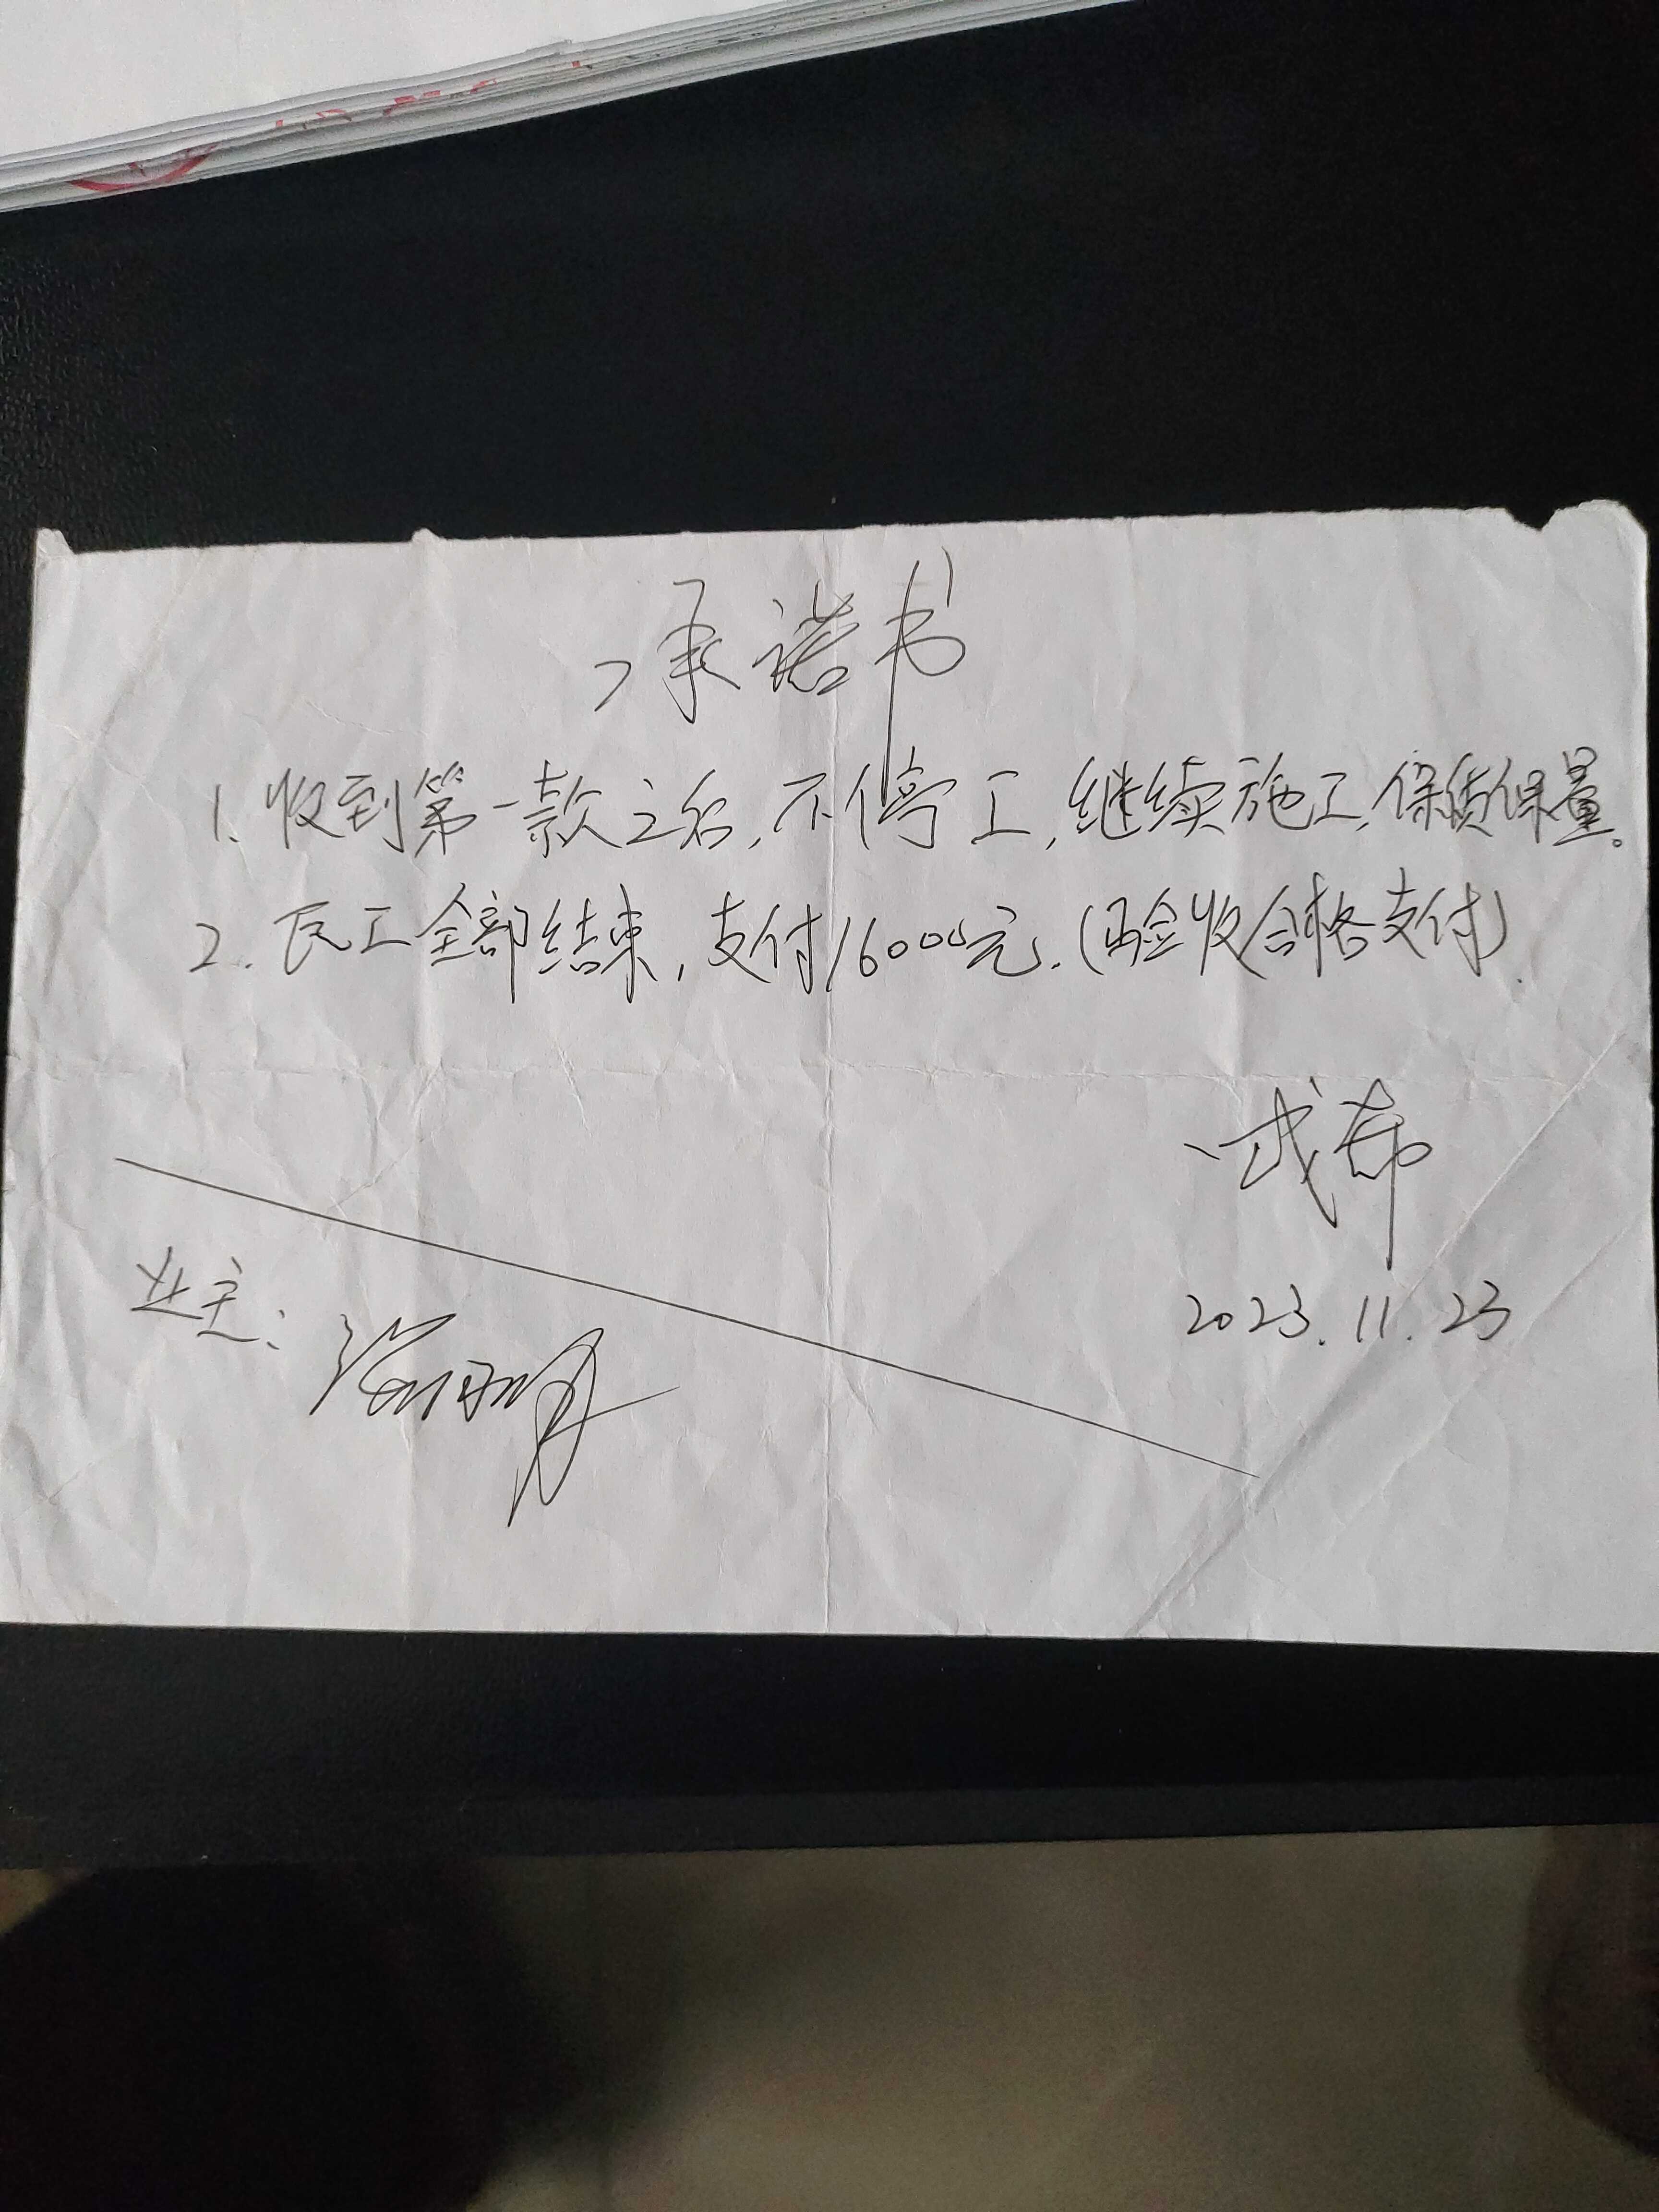 承诺书
1、收到第一款之后,不停工,继续施工,保质保量。
2. 瓦工全部结束,支付16000元.(验收合格支付).
2023.11.23
业主: